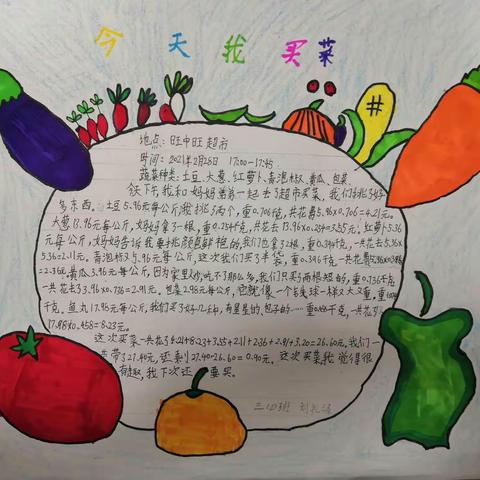 今天我买菜
地点：旺中旺超市
时间：2021年2月26日 17:00-17:45
蔬菜种类：土豆、大葱、红萝卜、青泡椒、黄瓜、包菜、
饺下午我和妈妈弟弟一起去了超市买菜，我们挑了好
多东西。土豆5.96元每公斤，我挑了两个，重0.706千克，共花费5.96×0.706=4.21元。
大葱13.96元每公斤，妈妈拿了一根，重0.254千克，共花去13.96×0.254=3.55元。红萝卜5.36
元每公斤，妈妈告诉我要挑颜色鲜艳的，我们也拿了2根，重0.394千克，一共花去5.36×
5.36=2.11元。青泡椒5.96元每公斤，这次我们买了半袋，重0.396千克，一共花费5.96×0.396
=2.36元。黄瓜3.96元每公斤，因为家里人少，吃不了那么多，我们只买了两根短的，重0.736千克
一共花去了3.96×0.736=2.91元。包菜2.98元每公斤，它就像一个毛线球一样又大又重，重
千克。鱼丸17.98元每公斤，我们买了好几种，有星星的、包子的……重0.458千克，一共花了
17.98×0.458=8.23元。
这次买菜一共花了4.21+8.23+3.55+2.11+2.36+2.91+3.20=26.60元。我们一
共带了27.40元，还剩27.40-26.60=0.90元。这次买菜我觉得很
有趣，我下次还要买。
三(2)班 刘